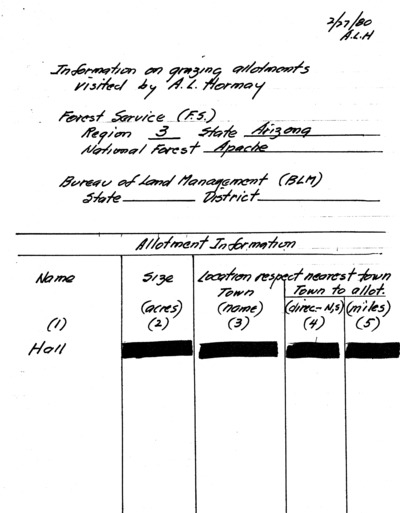 2/27/80
A.L.H
Information on grazing allotments
visited by A.L. Hormay
Forest Service (F.S.)
Region 3 State Arizona
National Forest Apache
Bureau of Land Management (BLM)
State District
Allotment Information
Name Size Location respect nearest town
Town Town to allot.
(acres) (name) (direc-N,S) (miles)
(1) (2) (3) (4) (5)
Hall